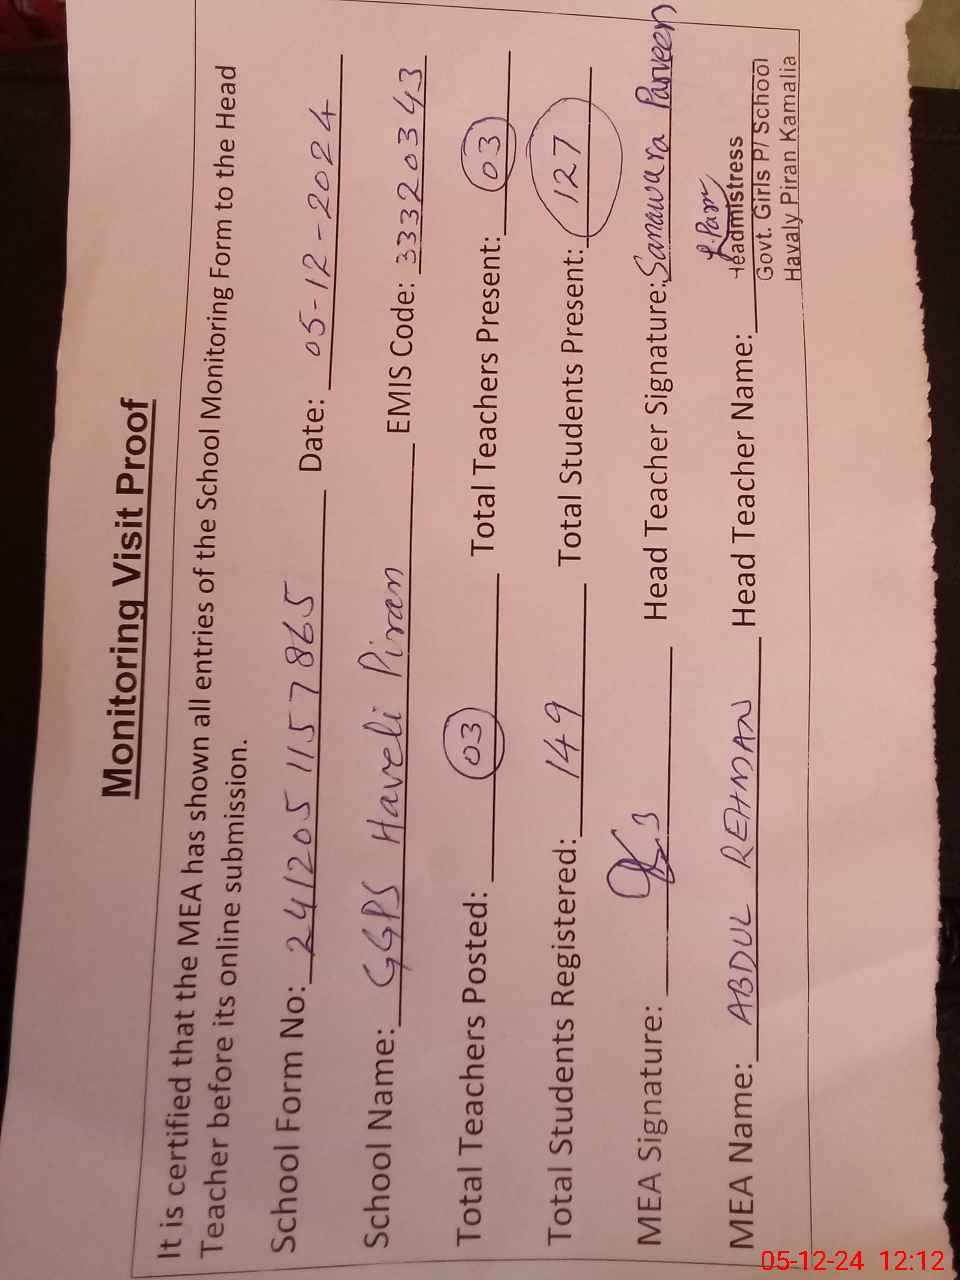 Monitoring Visit Proof
It is certified that the MEA has shown all entries of the School Monitoring Form to the Head
Teacher before its online submission.
School Form No: 241205 1157865 Date: 05-12-2024
School Name: GGPS Haveli Piran EMIS Code: 33320343
Total Teachers Posted: 03 Total Teachers Present: 03
Total Students Registered: 149 Total Students Present: 127
MEA Signature: Head Teacher Signature: Sanawara Parveen
MEA Name: ABDUL REHMAN Head Teacher Name:
Headmistress
Govt. Girls P/ School
Havaly Piran Kamalia
05-12-24 12:12